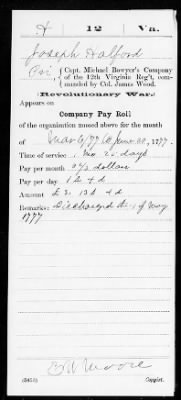 H 12 Va.
Joseph Halford
Pri, Capt. Michael Bowyer's Company
of the 12th Virginia Reg't, com-
manded by Col. James Wood.
(Revolutionary War.)
Appears on
Company Pay Roll
of the organization named above for the month
of 1777.
Time of service, 1 mo 20 days
Pay per month 6 2/3 dollars
Pay per day
Amount
Remarks: Discharged of May
1777
Moore
Copyist.